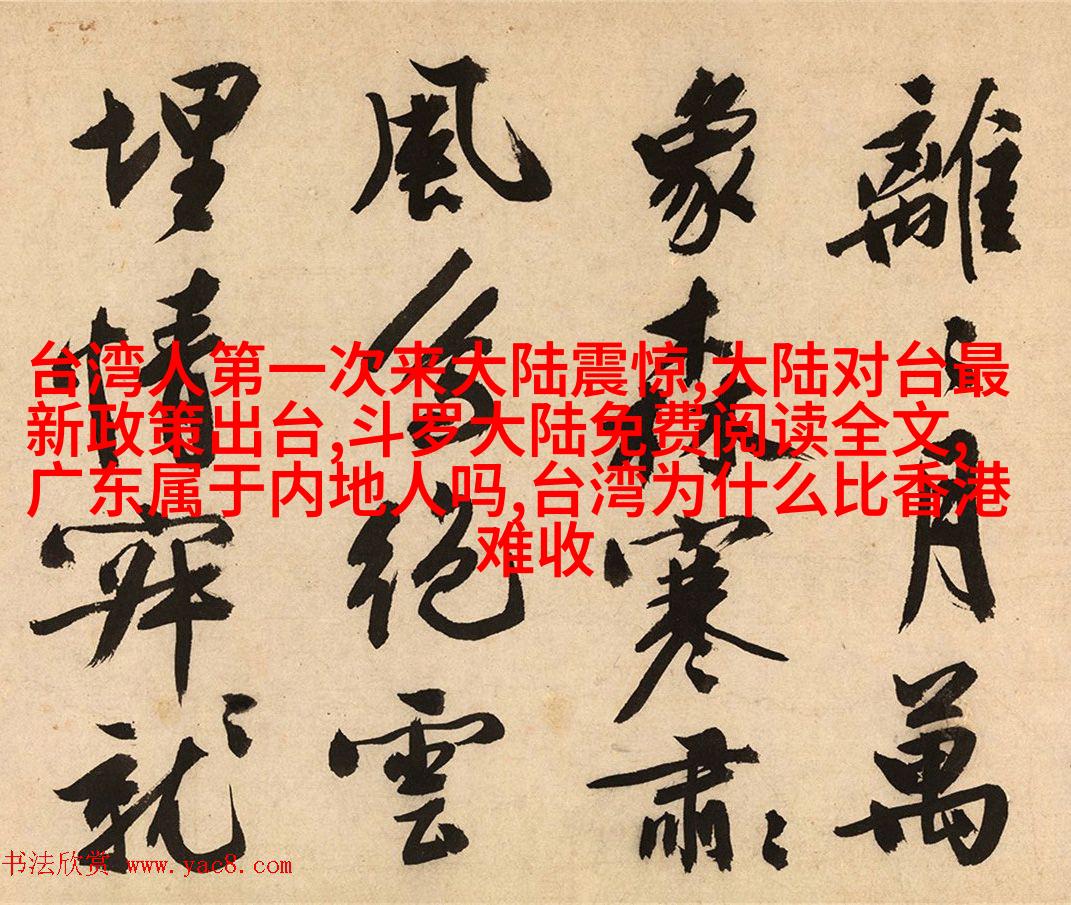 離〻月萬
象森寒肅〻
風絕雲
埋情就〻
台湾人第一次来大陆震惊,大陆对台最
新政策出台,斗罗大陆免费阅读全文,
广东属于内地人吗,台湾为什么比香港
难收
书法欣赏 www.yac8.com